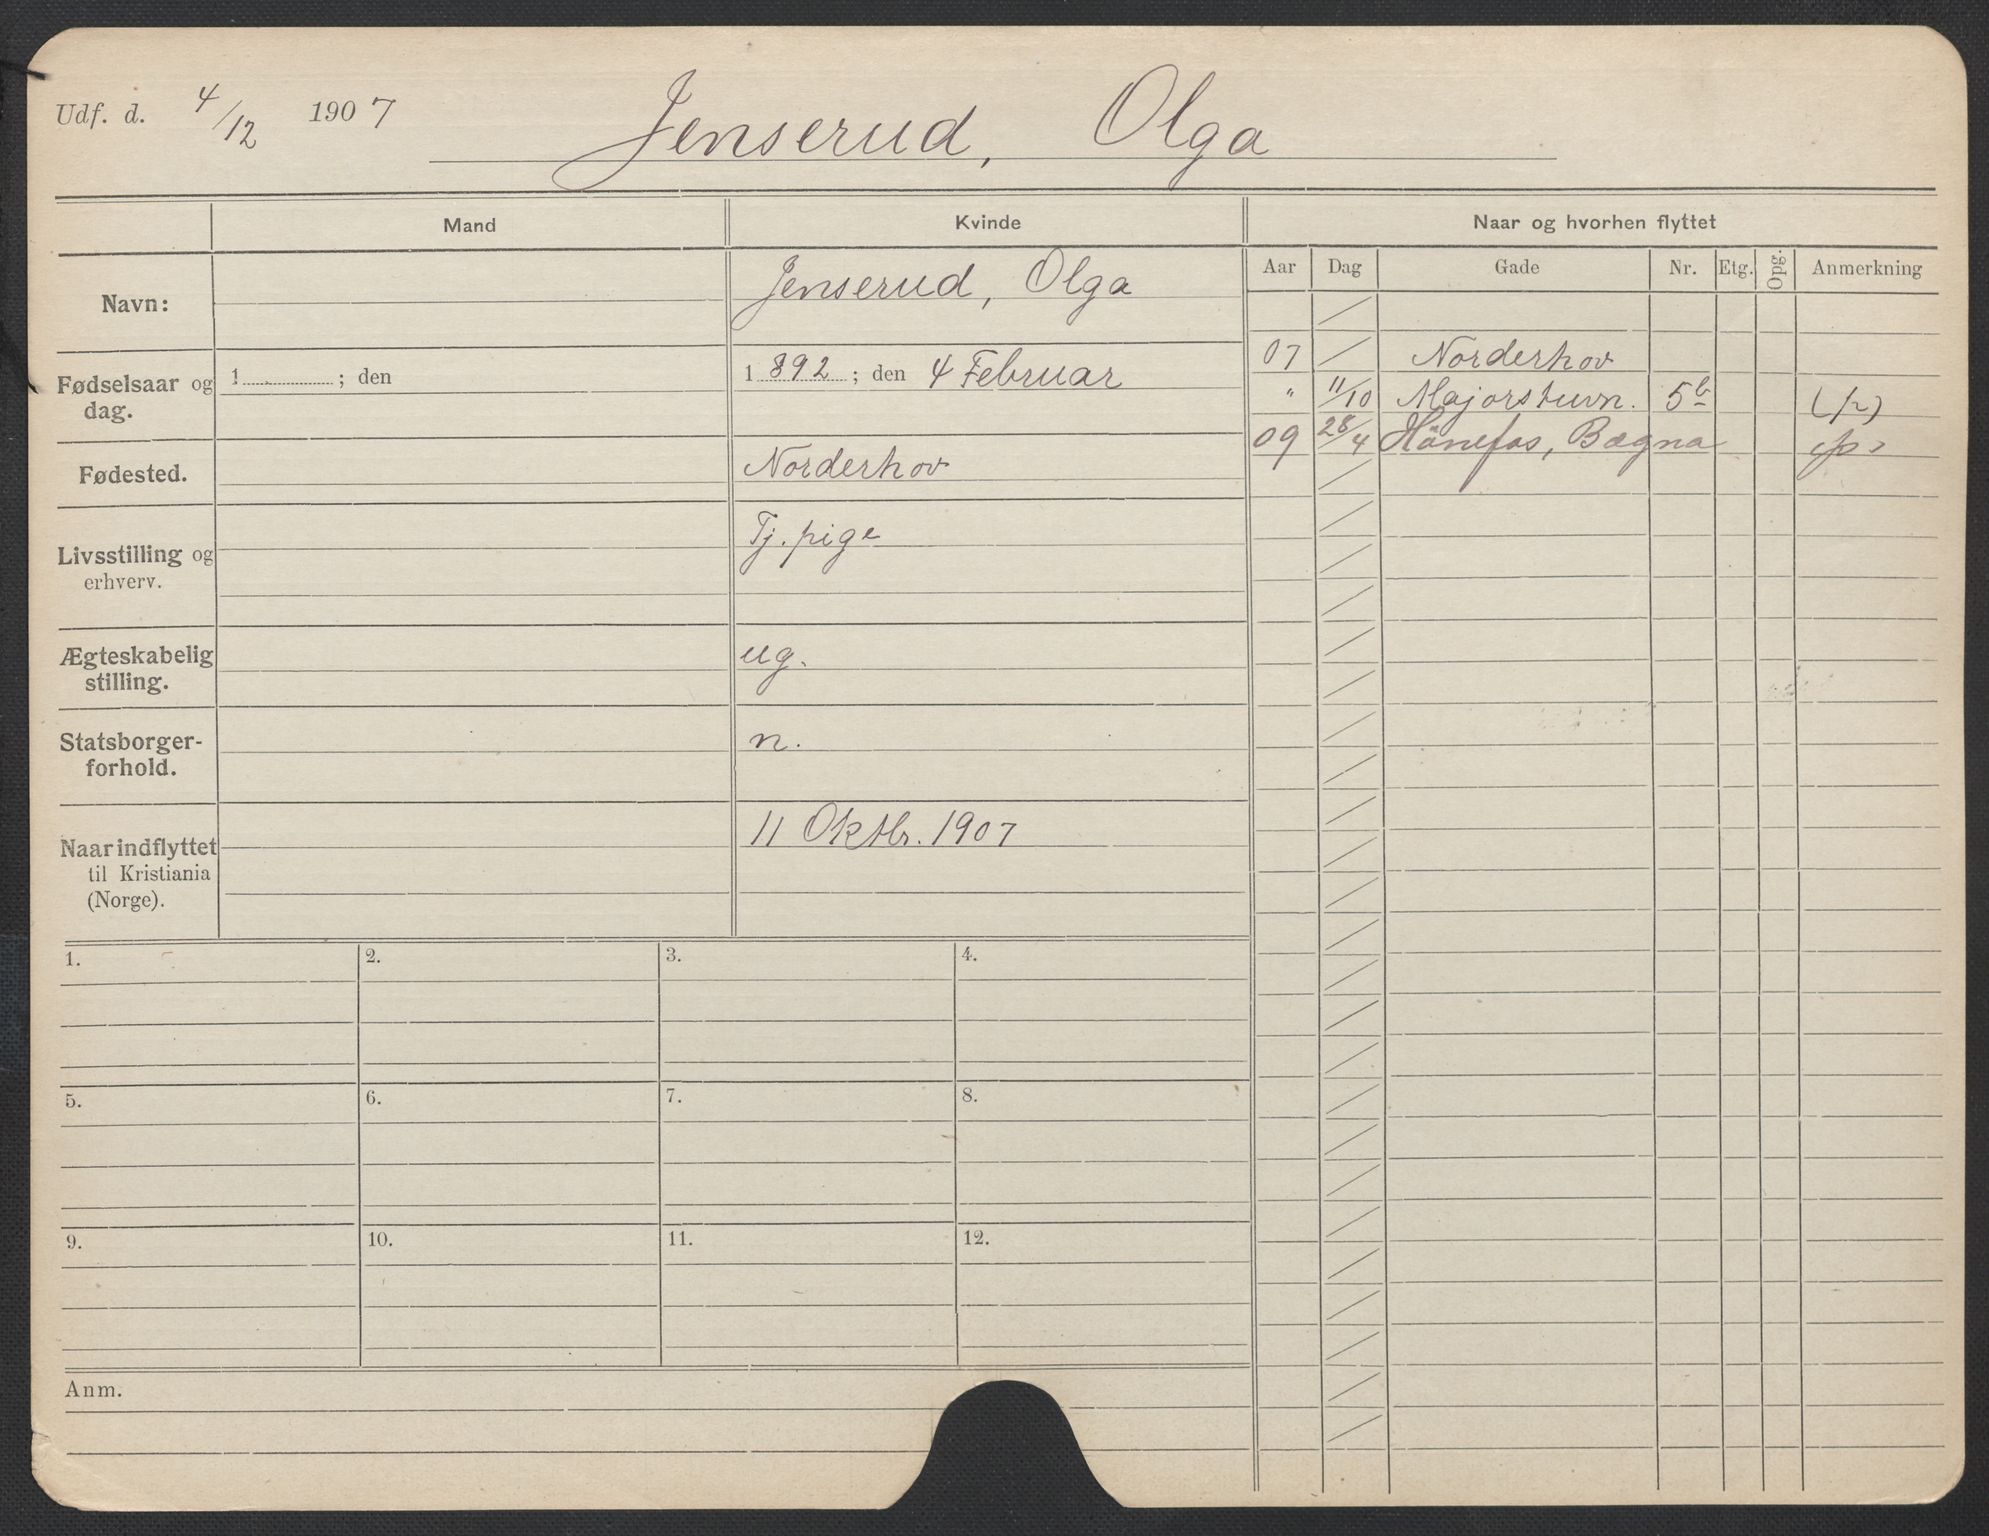 Udf. d. 4/12 1907 Jenserud, Olga
Mand Kvinde Naar og hvorhen flyttet
Aar Dag Gade Nr. Etg. Opg. Anmerkning
Navn: Jenserud, Olga
Fødselsaar og dag. 1 ; den 1892 ; den 4 Februar
Fødested. Norderhov
Livsstilling og erhverv. Tj. pige
Ægteskabelig stilling. ug.
Statsborger-forhold. n.
Naar indflyttet til Kristiania (Norge). 11 Oktbr. 1907
07 / Norderhov
" 11/10 Majorstuvn. 5b
09 28/4 Hönefos, Bægna
1. 2. 3. 4.
5. 6. 7. 8.
9. 10. 11. 12.
Anm.